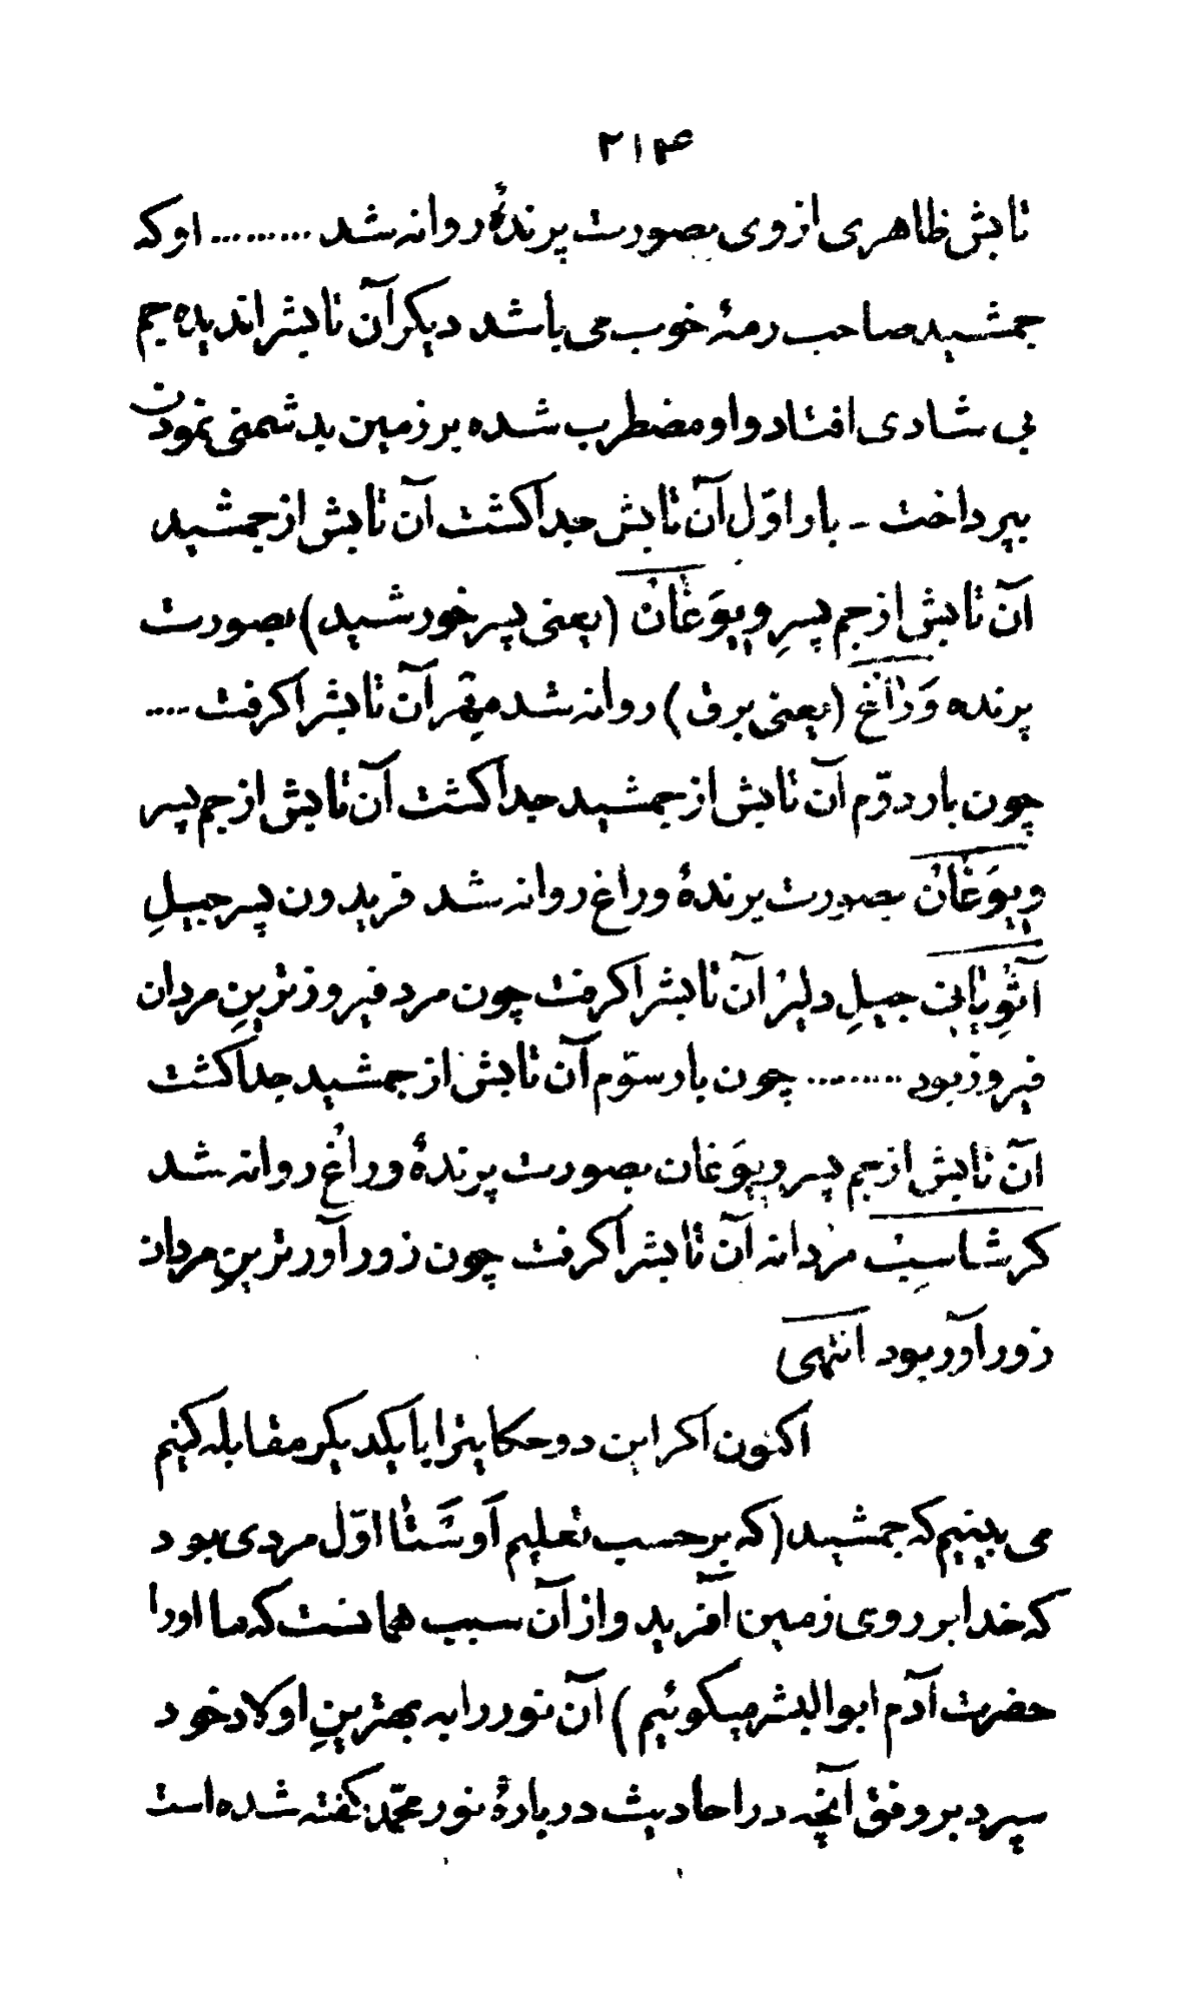 ۲۱۴
تابش ظاهری از وی بصورت پرندهٔ روانه شد ......... او که
جمشید صاحب رمهٔ خوب می باشد دیکر آن تابشرا ندیده جم
بی شادی افتاد و او مضطرب شده بر زمین بدشمنی نمودن
بپرداخت - بار اوّل آن تابش جدا کشت آن تابش از جمشید
آن تابش از جم پسرِ ویوَغَانْ (یعنی پسر خورشید) بصورت
پرنده وَرَاغْ (یعنی برق) روانه شد میثهر آن تابشرا کرفت ....
چون بار دوّم آن تابش از جمشید جدا کشت آن تابش از جم پسر
ویوَغَانْ بصورت پرندهٔ وراغ روانه شد فریدون پسر جبیلِ
آثوِیانی جبیلِ دلیر آن تابشرا کرفت چون مرد فیروزترینِ مردان
فیروز بود ......... چون بار سوّم آن تابش از جمشید جدا کشت
آن تابش از جم پسر ویوَغان بصورت پرندهٔ وراغ روانه شد
کرشاسپ مردانه آن تابشرا کرفت چون زورآورترینِ مردان
زورآور بود انتهی
اکنون اکر این دو حکایترا با یکدیکر مقابله کنیم
می بینیم که جمشید (که بر حسب تعلیم آوِسَتَا اوّل مردی بود
که خدا بر روی زمین آفرید و از آن سبب همانست که ما او را
حضرت آدم ابوالبشر میکوئیم) آن نور را به بهترینِ اولاد خود
سپرد بر وفق آنچه در احادیث دربارهٔ نور محمّد کفته شده است